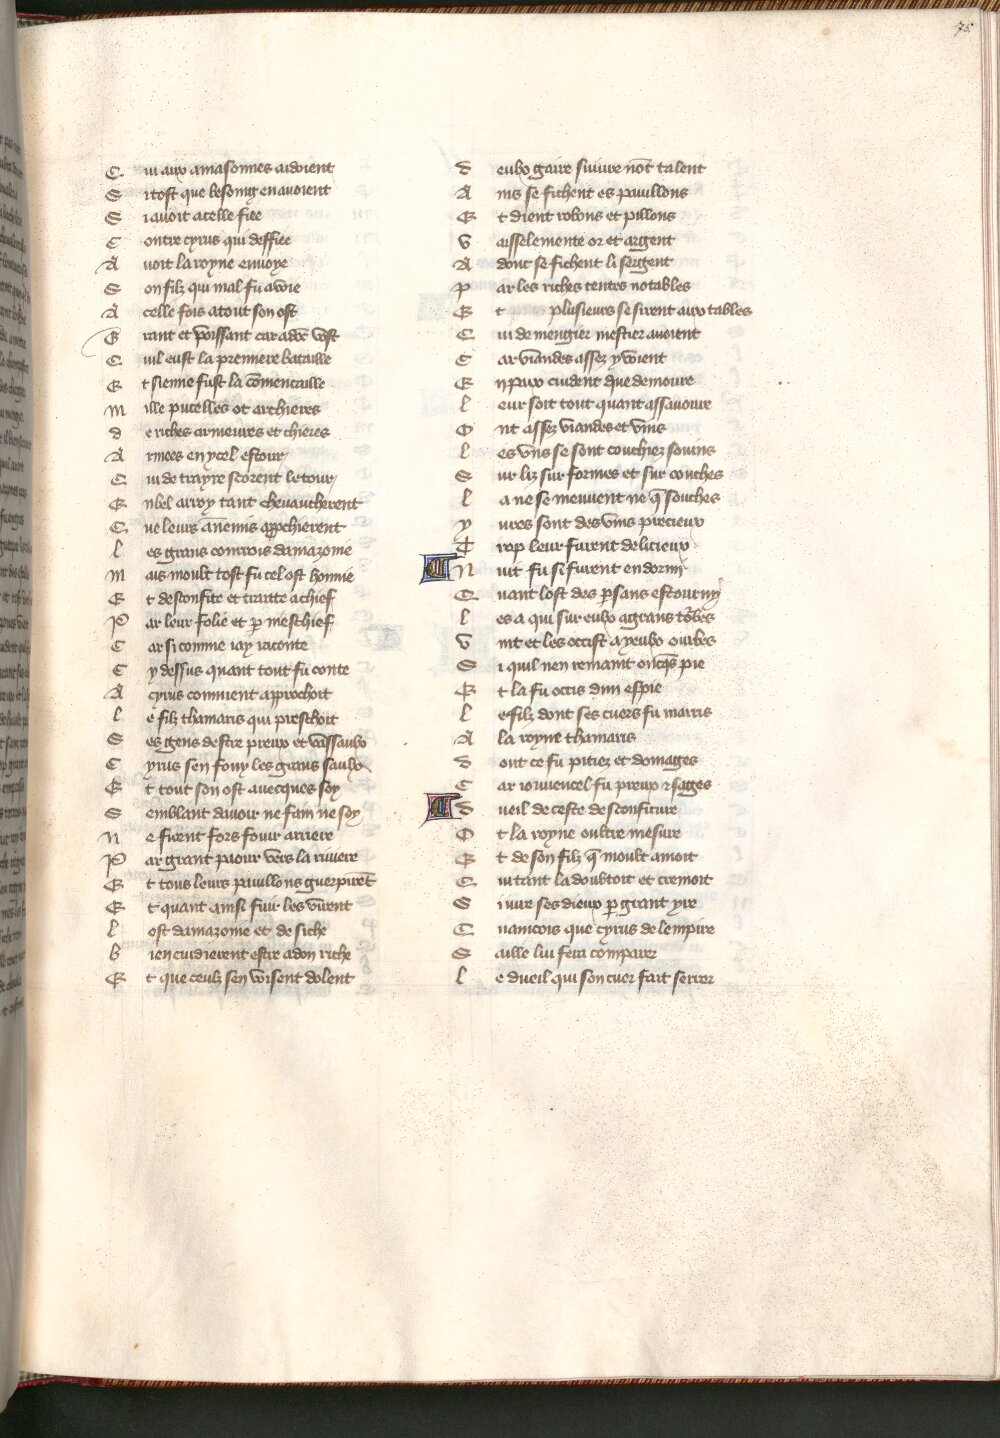 75
C ui aux amasonnes aidoient
S i tost que besoing en avoient
S i avoit a celle fiee
C ontre cyrus qui deffiee
A voit la royne envoye
S on filz qui mal fu avoie
A celle fois atout son ost
G rant et poissant car adoc vost
C uil eust la premiere bataille
E t sienne fust la cōmencaille
M ille pucelles ot archieres
d e riches armeures et chieres
A rmees en ycel estour
C ui de trayre scorent le tour
E n bel arroy tant chevaucherent
Q ue leurs ānemis apꝓchierent
l es grans conrrois damazonie
M ais moult tost fu cel ost honnie
E t desconfite et traitte a chief
P ar leur folie et ꝑ meschief
C ar si comme iay raconte
C y dessus quant tout fu conte
A cyrus comment approchoit
l e filz thamaris qui preschoit
S es gens destre preux et vassaulx
C yrus sen fouy les grans saulx
E t tout son ost avecques soy
S emblant davoir ne fain ne soy
N e firent fors fouir arriere
P ar grant paour vers la riviere
E t tous leurs pavillons guerpirēt
E t quant ainsi fuir les virent
l ost damazonie et de siche
b ien cuidierent estre adon riche
E t que ceulz sen voisent dolent
d eulx gaire suivre nōt talent
A ins se fichent es pavillons
E t dient robons et pillons
V aisselemente or et argent
A donc se fichent li sergent
P ar les riches tentes notables
E t plusieurs se sirent aux tables
C ui de mengier mestier avoient
C ar viandes assez y voient
E n paix cuident que demoure
l eur soit tout quant assavoure
O nt assez viandes et vins
l es vns se sont couchiez souvins
S ur liz sur formes et sur couches
l a ne se meuvent ne q̄ souches
Y vres sont des vins precieux
T rop leur furent delicieux
N uit fu si furent endormi
Q uant lost des ꝑsans estourmi
l es a qui sur eulx a grans tōbes
V int et les occist
S i quil nen remaint oncq̄s pie
E t la fu occis dun espie
l e filz dont ses cuers fu marris
A la royne thamaris
d ont ce fu pitiez et domages
C ar iouvencel fu preux ⁊ sages
d ueil de ceste desconfiture
O t la royne oultre mesure
E t de son filz q̄ moult amoit
C ui tant la doubtoit et cremoit
S i iure ses dieux ꝑ grant yre
C uancois que cyrus de lempire
S aille lui fera comparer
l e dueil qui son cuer fait serrer